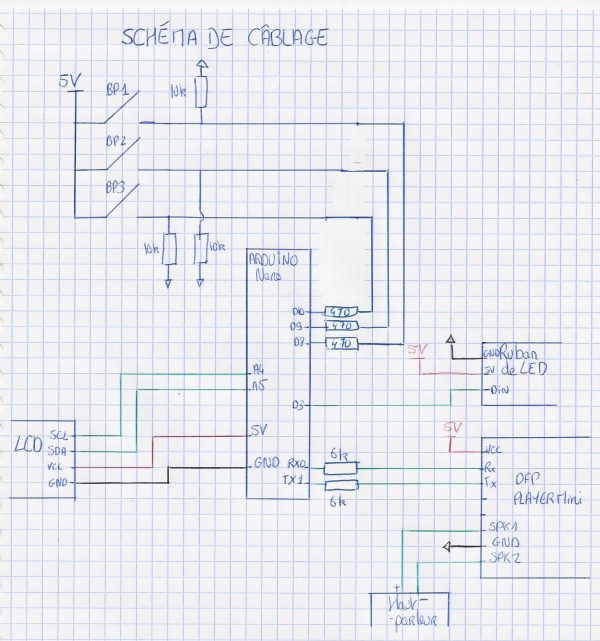 SCHÉMA DE CÂBLAGE
5V
BP1
10k
BP2
BP3
10k
10k
ARDUINO
Nano
D10
470
D9
470
D7
470
A4
A5
D3
5V
GND
RX0
TX1
6k
6k
LCD
SCL
SDA
VCC
GND
5V
GND
Ruban
5V
de LED
Din
5V
VCC
Rx
Tx
DFP
PLAYER Mini
SPK1
GND
SPK2
+
-
Haut-
-parleur